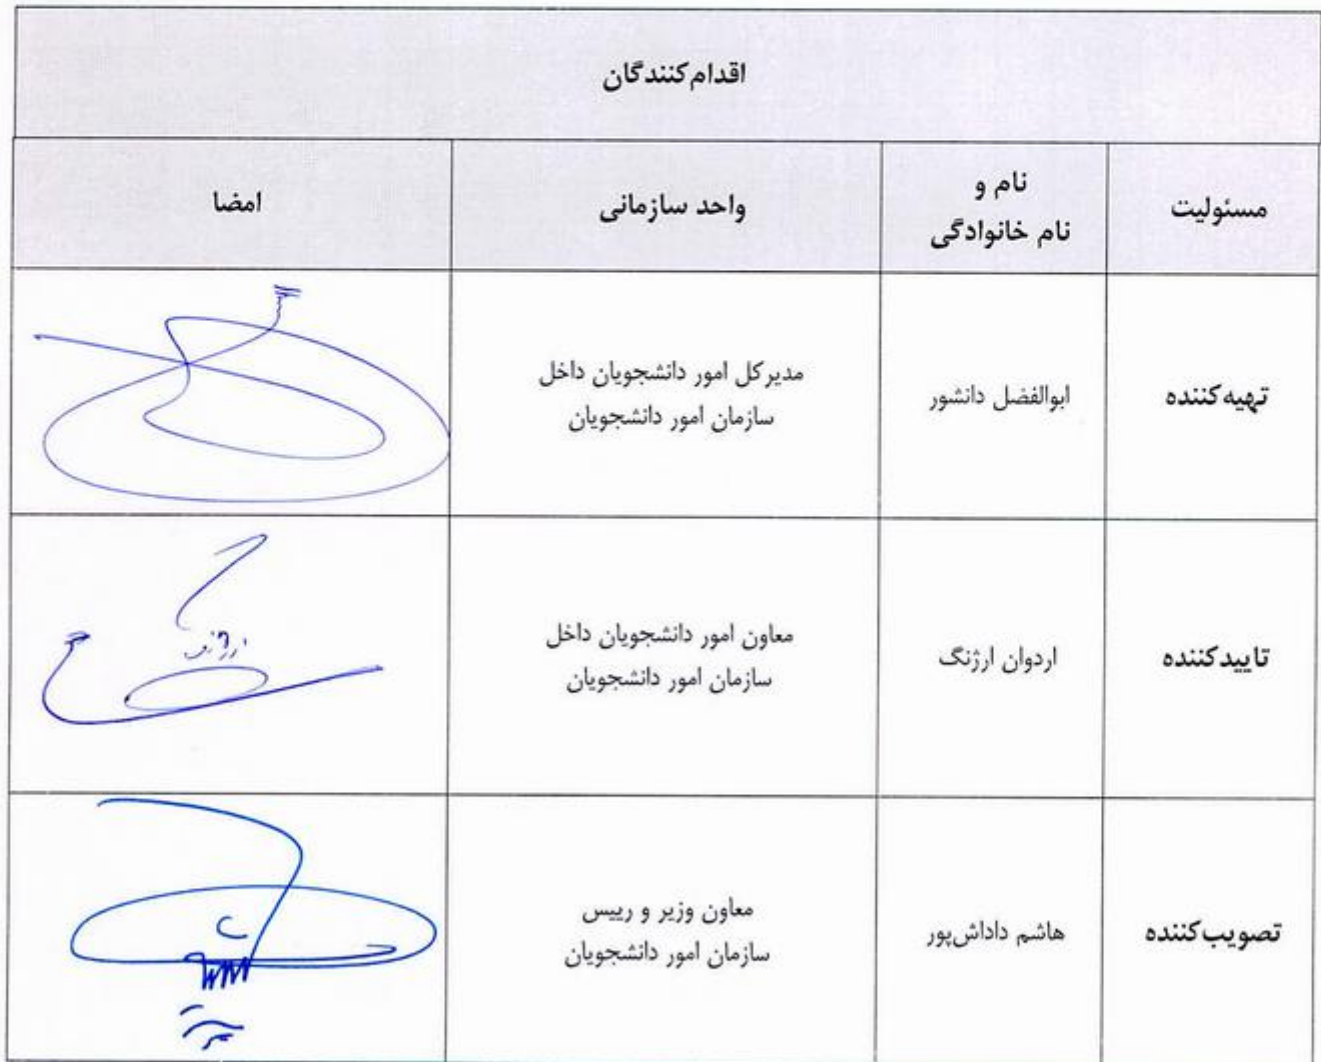 اقدام‌کنندگان
مسئولیت
نام و
نام خانوادگی
واحد سازمانی
امضا
تهیه‌کننده
ابوالفضل دانشور
مدیرکل امور دانشجویان داخل
سازمان امور دانشجویان
تاییدکننده
اردوان ارژنگ
معاون امور دانشجویان داخل
سازمان امور دانشجویان
تصویب‌کننده
هاشم داداش‌پور
معاون وزیر و رییس
سازمان امور دانشجویان